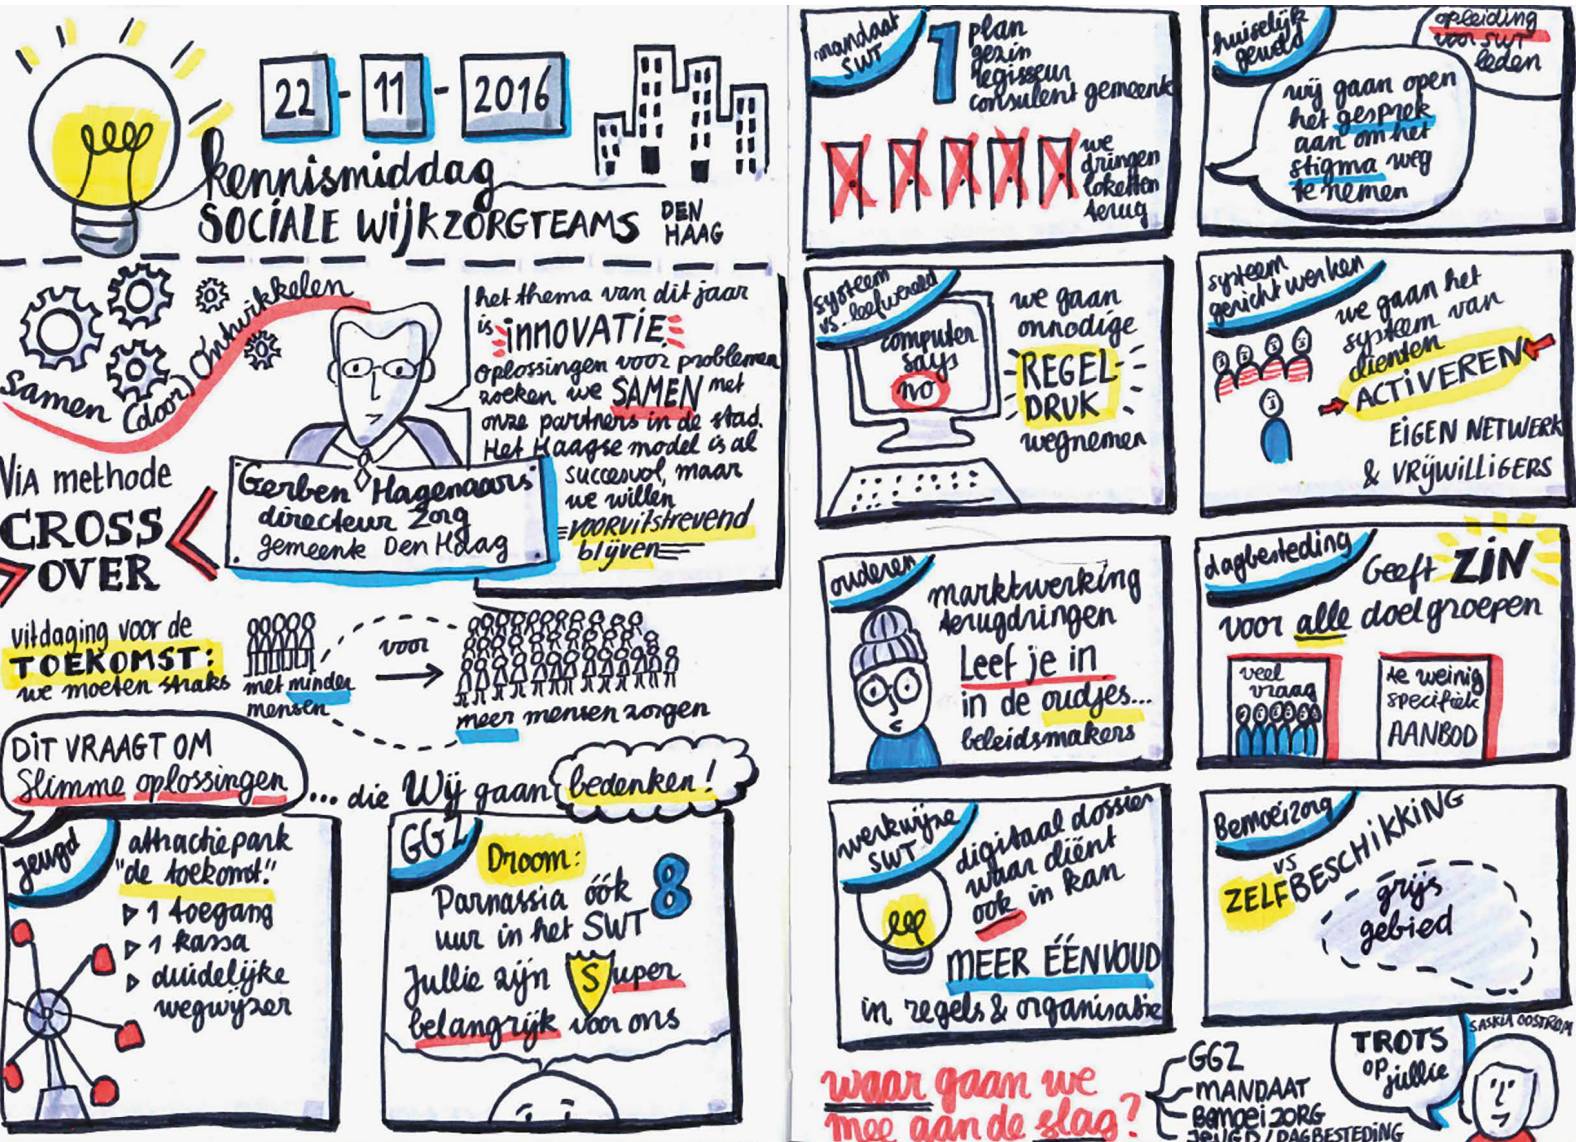 22 - 11 - 2016
kennismiddag
SOCIALE WIJKZORGTEAMS
DEN
HAAG
Samen (door) Ontwikkelen
VIA methode
CROSS
OVER
Gerben Hagenaars
directeur Zorg
gemeente Den Haag
het thema van dit jaar
is INNOVATIE
oplossingen voor problemen
zoeken we SAMEN met
onze partners in de stad.
Het Haagse model is al
succesvol, maar
we willen
vooruitstrevend
blijven
uitdaging voor de
TOEKOMST:
we moeten straks
met minder
mensen
voor
meer mensen zorgen
DIT VRAAGT OM
Slimme oplossingen
... die Wij gaan bedenken!
Jeugd
attractiepark
"de toekomst"
1 toegang
1 kassa
duidelijke
wegwijzer
GGZ
Droom:
Parnassia óók 8
uur in het SWT
Jullie zijn Super
belangrijk voor ons
mandaat
SWT
1 plan
gezin
regisseur
consulent gemeente
we
dringen
loketten
terug
huiselijk
geweld
opleiding
voor SWT
leden
wij gaan open
het gesprek
aan om het
stigma weg
te nemen
systeem
vs. leefwereld
computer
says
no
we gaan
onnodige
REGEL-
DRUK
wegnemen
systeem
gericht werken
we gaan het
systeem van
cliënten
ACTIVEREN
EIGEN NETWERK
& VRIJWILLIGERS
ouderen
marktwerking
terugdringen
Leef je in
in de oudjes...
beleidsmakers
dagbesteding
Geeft ZIN
voor alle doelgroepen
veel
vraag
te weinig
specifiek
AANBOD
werkwijze
SWT
digitaal dossier
waar cliënt
ook in kan
MEER ÉÉNVOUD
in regels & organisatie
Bemoeizorg
vs
ZELFBESCHIKKING
grijs
gebied
waar gaan we
mee aan de slag?
GGZ
MANDAAT
BEMOEIZORG
JEUGD/DAGBESTEDING
TROTS
op
jullie
SASKIA OOSTROM